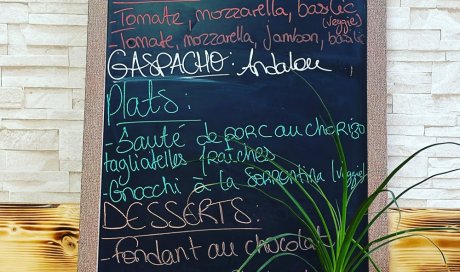 -Tomate, mozzarella, basilic
(veggie)
-Tomate, mozzarella, jambon, basilic
GASPACHO: Andalou
Plats:
-Sauté de porc au chorizo
tagliatelles fraîches
-Gnocchi à la Sorrentina (veggie)
DESSERTS:
-Fondant au chocolat